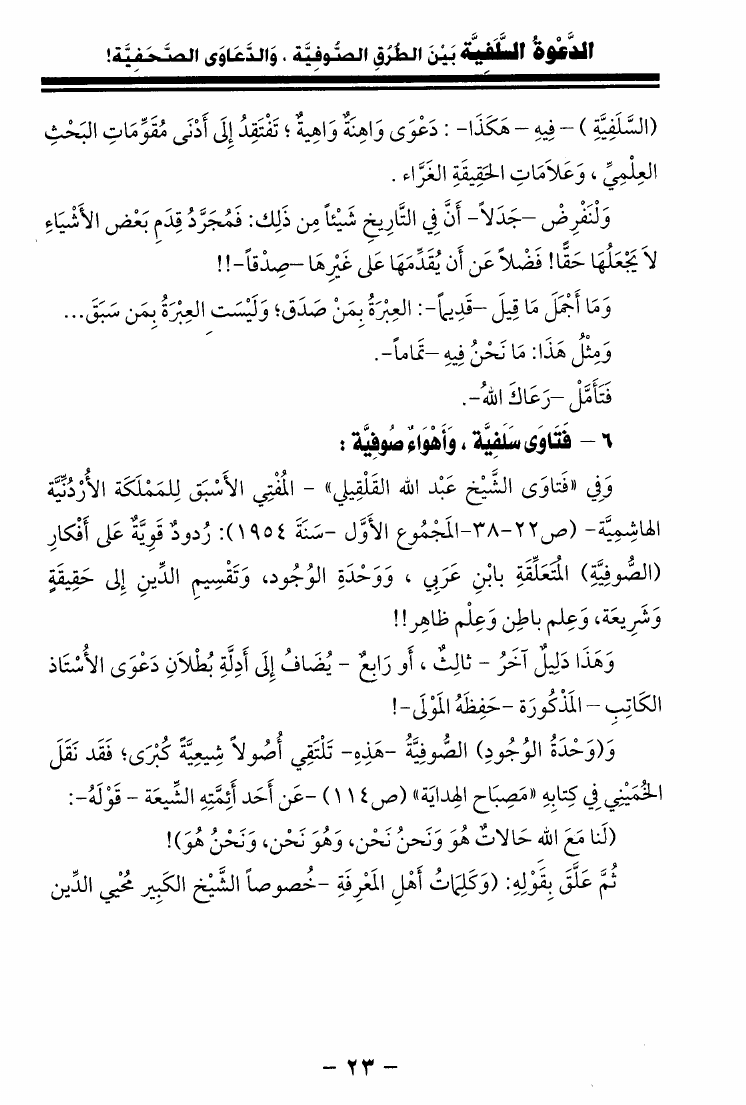 الدَّعْوةُ السَّلَفِيَّة بَيْنَ الطُرُقِ الصُّوفِيَّة ، وَالدَّعَاوَى الصَّحَفِيَّة!
(السَّلَفِيَّةِ) – فِيهِ – هَكَذَا- : دَعْوَى وَاهِنَةٌ وَاهِيةٌ ؛ تَفْتَقِدُ إِلَى أَدْنَى مُقَوِّمَاتِ البَحْثِ
العِلْمِيِّ ، وَعَلاَمَاتِ الحَقِيقَةِ الغَرَّاء .
وَلْنَفْرِضْ –جَدَلاً- أَنَّ فِي التَّارِيخِ شَيْئاً مِن ذَلِكَ: فَمُجَرَّدُ قِدَمِ بَعْض الأَشْيَاءِ
لاَ يَجْعَلُهَا حَقًّا! فَضْلاً عَن أَن يُقَدِّمَهَا عَلَى غَيْرِهَا –صِدْقاً-!!
وَمَا أَجْمَلَ مَا قِيلَ –قَدِيماً-: العِبْرَةُ بِمَنْ صَدَق؛ وَلَيْسَت العِبْرَةُ بِمَن سَبَقَ...
وَمِثْلُ هَذَا: مَا نَحْنُ فِيهِ –تَمَاماً-.
فَتَأَمَّلْ –رَعَاكَ اللهُ-.
٦ – فَتَاوَى سَلَفِيَّة ، وَأَهْوَاءٌ صُوفِيَّة :
وَفِي «فَتَاوَى الشَّيْخ عَبْد الله القَلْقِيلي» - المُفْتِي الأَسْبَق لِلمَمْلَكَة الأُرْدُنِّيَّة
الهاشِمِيَّة- (ص٢٢-٣٨-المَجْمُوع الأَوَّل -سَنَةَ ١٩٥٤): رُدودٌ قَوِيَّةٌ عَلَى أَفْكارِ
(الصُّوفِيَّةِ) المُتَعَلِّقَةِ بابْنِ عَرَبي ، وَوَحْدَةِ الوُجُود، وَتَقْسِيمِ الدِّينِ إِلى حَقِيقَةٍ
وَشَرِيعَة، وَعِلم باطِن وَعِلْم ظاهِر!!
وَهَذَا دَلِيلٌ آخَرُ - ثالِثٌ ، أَو رَابِعٌ - يُضَافُ إِلَى أَدِلَّةِ بُطْلاَنِ دَعْوَى الأُسْتَاذ
الكَاتِبِ – المَذْكُورَة -حَفِظَهُ المَوْلَى-!
وَ(وَحْدَةُ الوُجُودِ) الصُّوفِيَّةُ -هَذِهِ- تَلْتَقِي أُصُولاً شِيعِيَّةً كُبْرَى؛ فَقَد نَقَلَ
الخُمَيْنِي فِي كِتابِهِ «مَصِبَاح الهِدايَة» (ص١١٤) -عَن أَحَد أَئِمَّتِهِ الشِّيعَة - قَوْلَهُ-:
(لَنا مَعَ الله حَالاتٌ هُوَ وَنَحنُ نَحْن، وَهُوَ نَحْن، وَنَحْنُ هُوَ)!
ثُمَّ عَلَّقَ بِقَوْلِهِ: (وَكَلِمَاتُ أَهْلِ المَعْرِفَةِ -خُصوصاً الشَّيْخ الكَبِير مُحْيِي الدِّين
- ٢٣ -